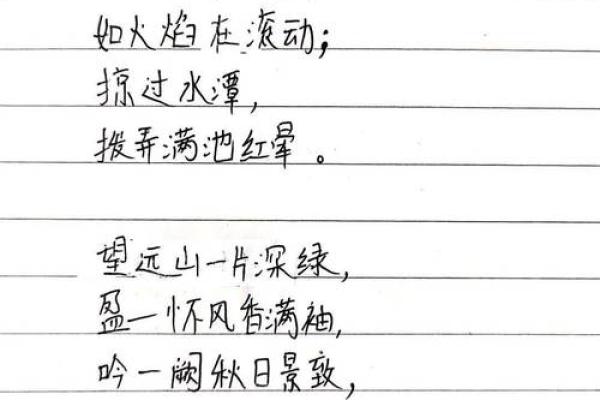 如火焰在滚动；
掠过水潭，
拨弄满池红晕。
望远山一片深绿，
盈一怀风香满袖，
吟一阙秋日景致，